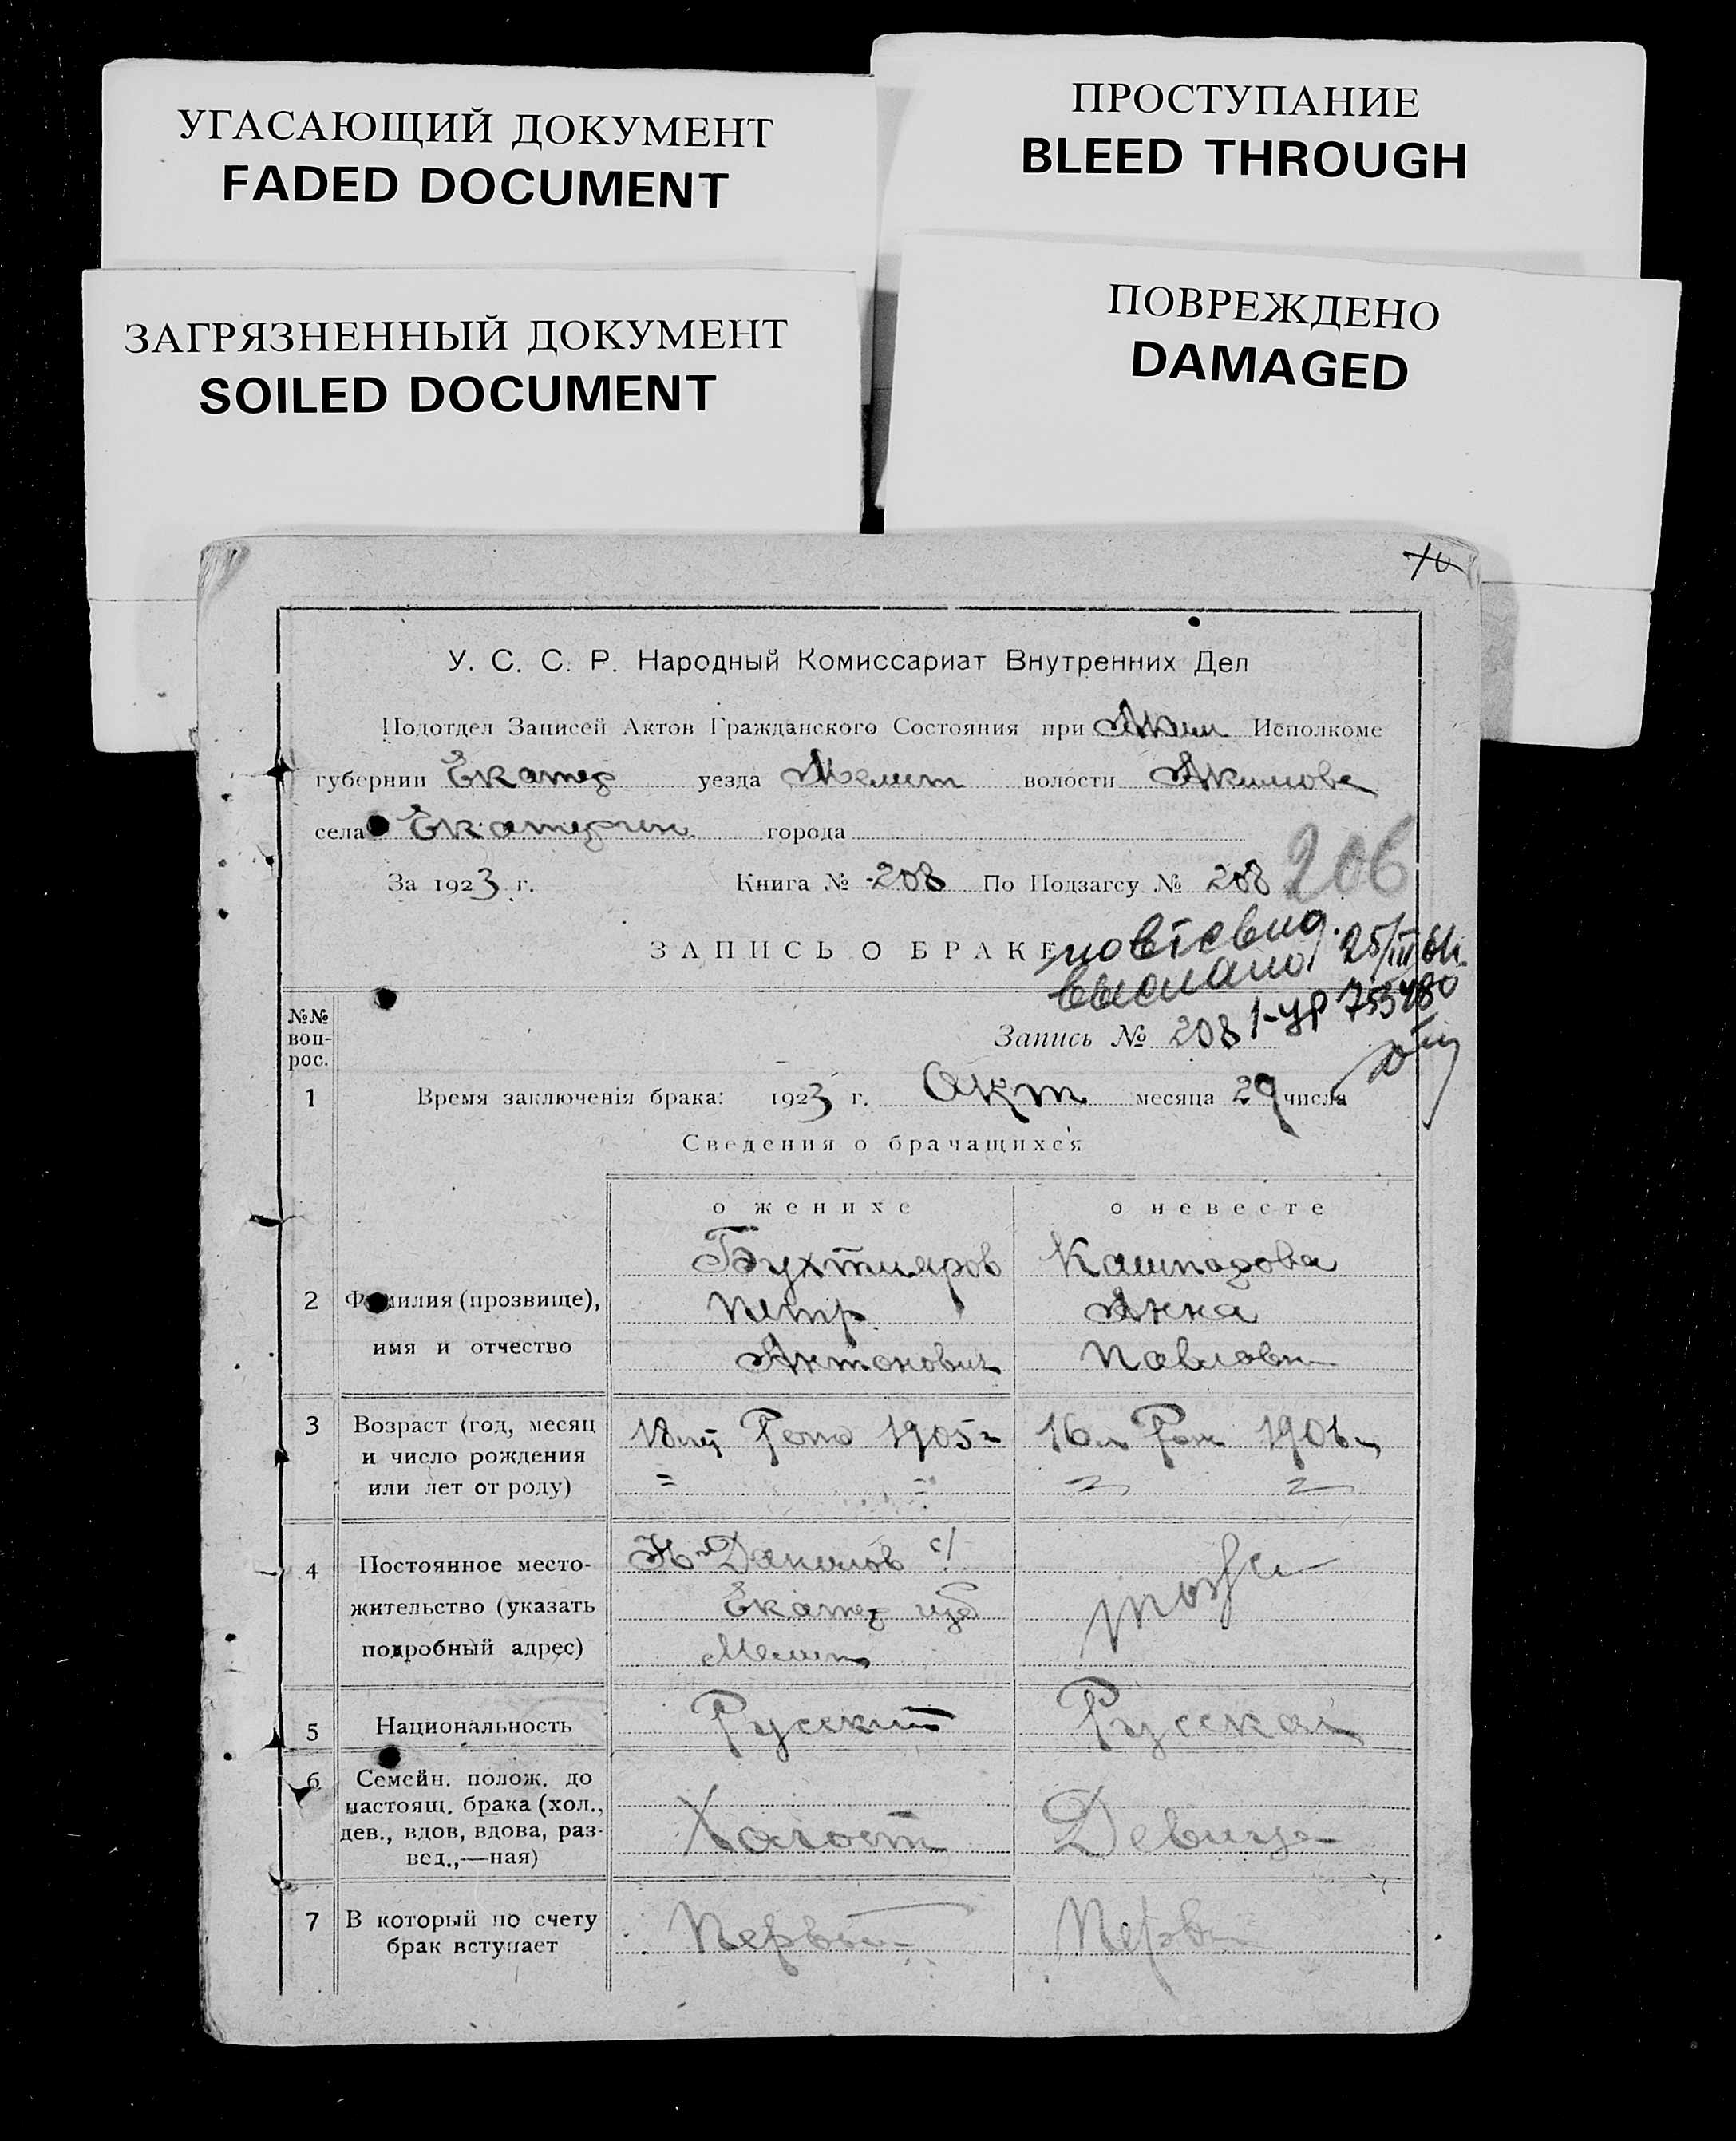 УГАСАЮЩИЙ ДОКУМЕНТ
FADED DOCUMENT
ПРОСТУПАНИЕ
BLEED THROUGH
ЗАГРЯЗНЕННЫЙ ДОКУМЕНТ
SOILED DOCUMENT
ПОВРЕЖДЕНО
DAMAGED
У. С. С. Р. Народный Комиссариат Внутренних Дел
Подотдел Записей Актов Гражданского Состояния при Аким Исполкоме
губернии Екатер уезда Мелит волости Акимова
села Екатерин города
206
За 1923 г. Книга № 208 По Подзагсу № 208
ЗАПИСЬ О БРАКЕ
повт свид. 25/III 61г.
выслано
1-УР 753480
Запись № 208
№№ воп- рос.
1 Время заключенія брака: 1923 г. Окт месяца 29 числа
Сведения о брачащихся
о женихе о невесте
Бухтияров Кашпадова
2 Фамилия (прозвище), Петр Анна
имя и отчество Антонович Павловн
3 Возраст (год, месяц 18 Рож 1905 16 Рож 1906
и число рождения
или лет от роду)
4 Постоянное место- Н Данилов с/
жительство (указать Екатер губ тоже
подробный адрес) Мелит
5 Национальность Русский Русская
6 Семейн. полож. до
настоящ. брака (хол.,
дев., вдов, вдова, раз- Халост Девица
вед.,—ная)
7 В который по счету Первый Перв
брак вступает